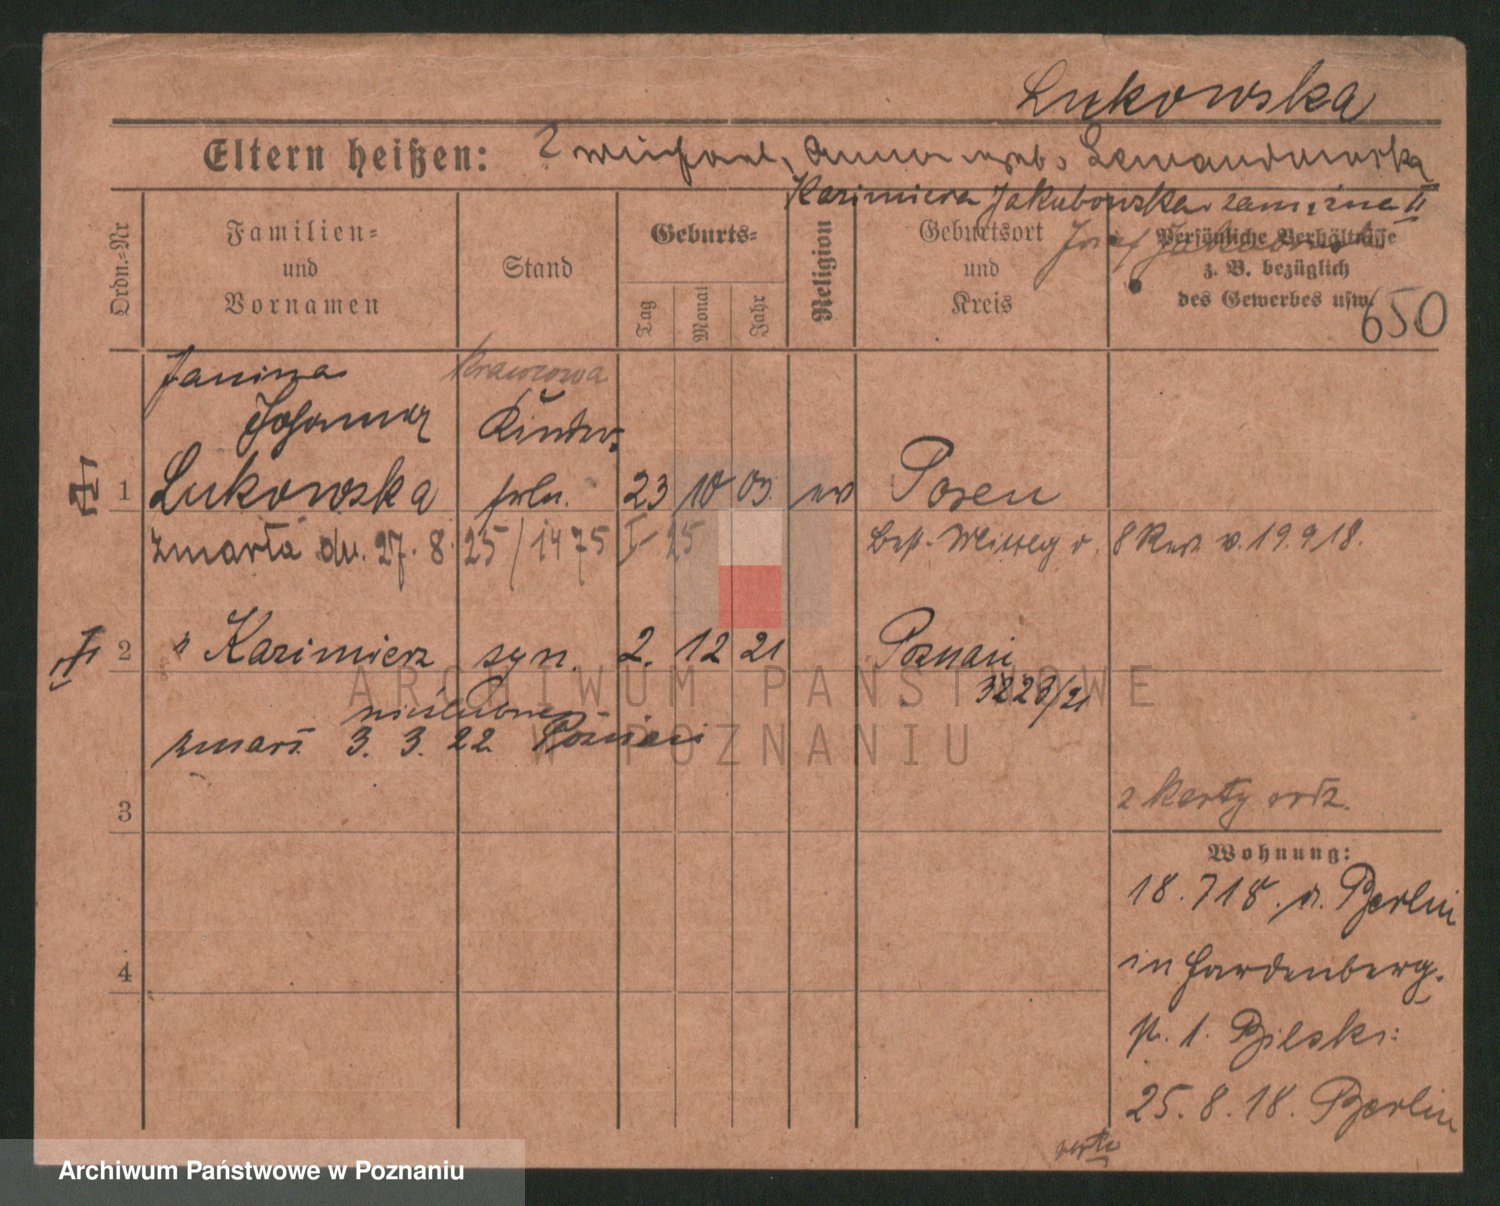 Lukowska
Eltern heißen: Michael, Anna geb. Lewandowska
Kazimiera Jakubowska zamężna II
Józef
650
Ordn.-Nr
Familien-
und
Vornamen
Stand
Geburts-
Tag
Monat
Jahr
Religion
Geburtsort
und
Kreis
Persönliche Verhältnisse
z. B. bezüglich
des Gewerbes usw.
Janina Krawcowa
Johanna
1 Lukowska 23 10 03. Posen
zmarła dn. 27. 8. 25/1475 I-25
v. 19.9 18.
2 " Kazimierz syn. 2. 12 21 Poznań
3223/21
nieślubne
zmarł. 3. 3. 22 Poznań
3
z karty rodz.
Wohnung:
18. 7 18. Berlin
in Hardenberg.
1. Bilski:
4
25. 8. 18. Berlin
verte
ARCHIWUM PAŃSTWOWE
W POZNANIU
Archiwum Państwowe w Poznaniu